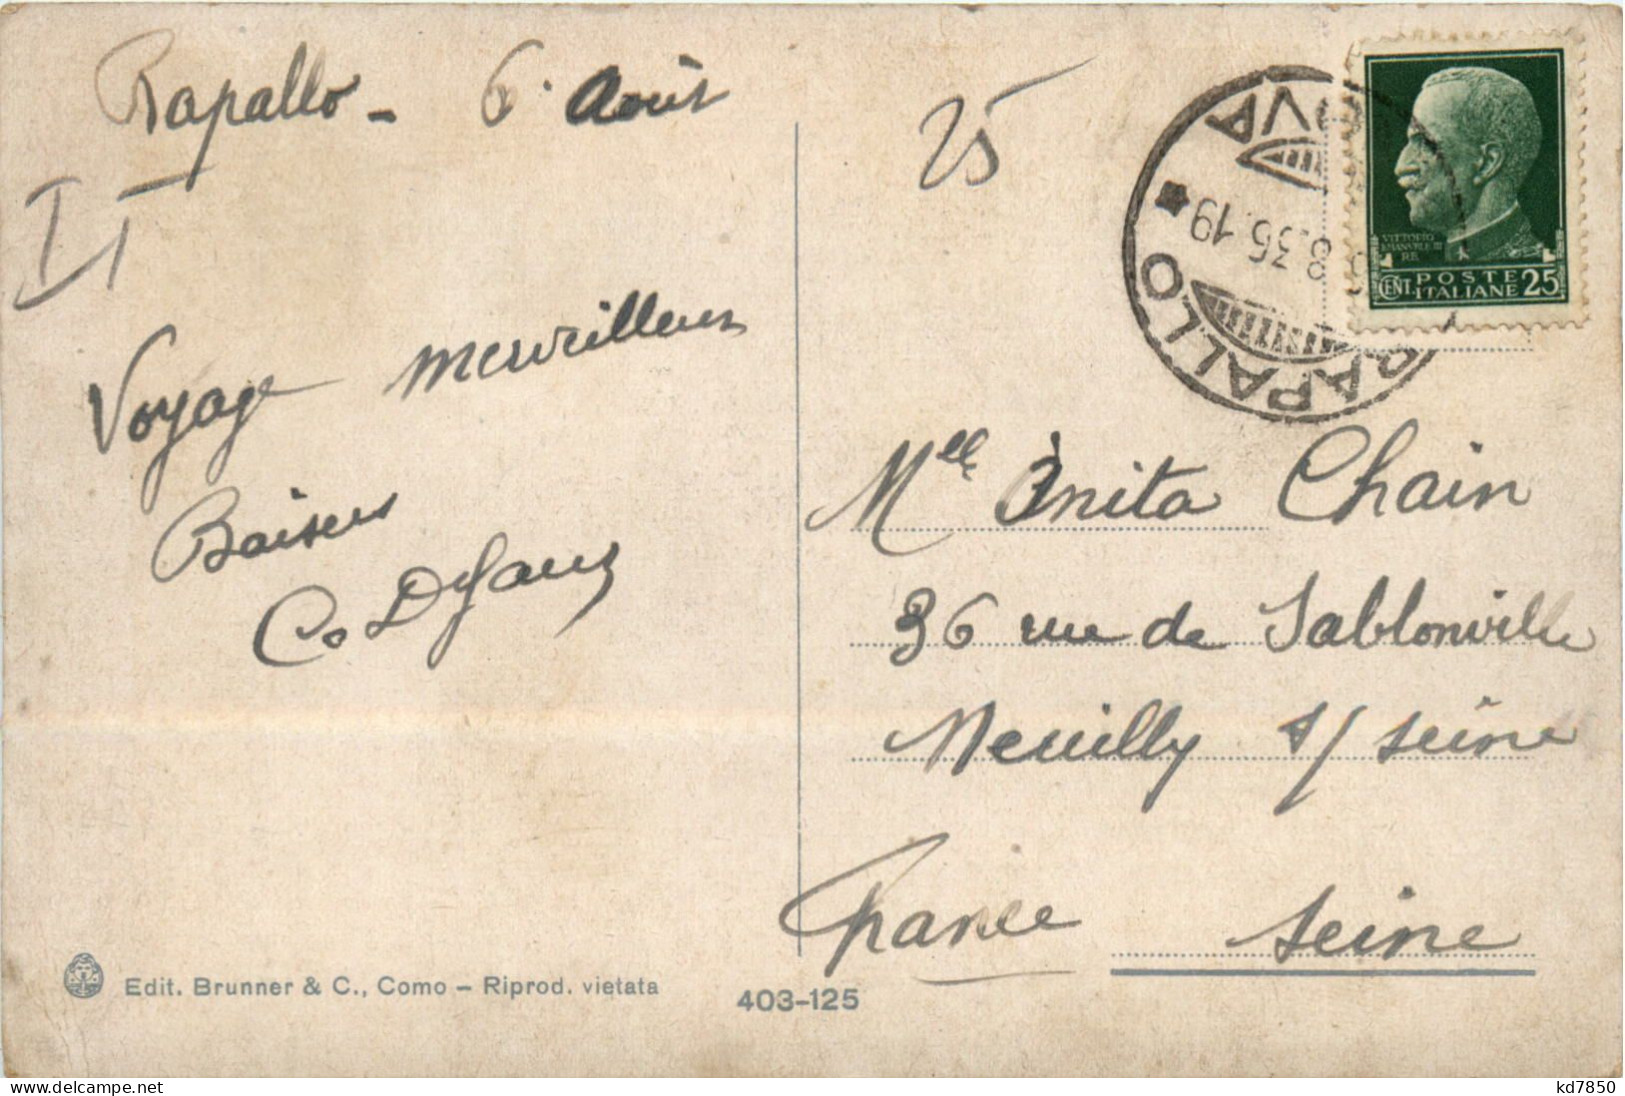 Rapallo - 6 Août
25
IT
Voyage merveilleux
Baisers
RAPALLO
8.36.19
VITTORIO
EMANVELE III
RE
CENT. POSTE ITALIANE 25
Melle Anita Chain
36 rue de Sablonville
Neuilly s/ Seine
France Seine
Edit. Brunner & C., Como - Riprod. vietata
403-125
kd7850